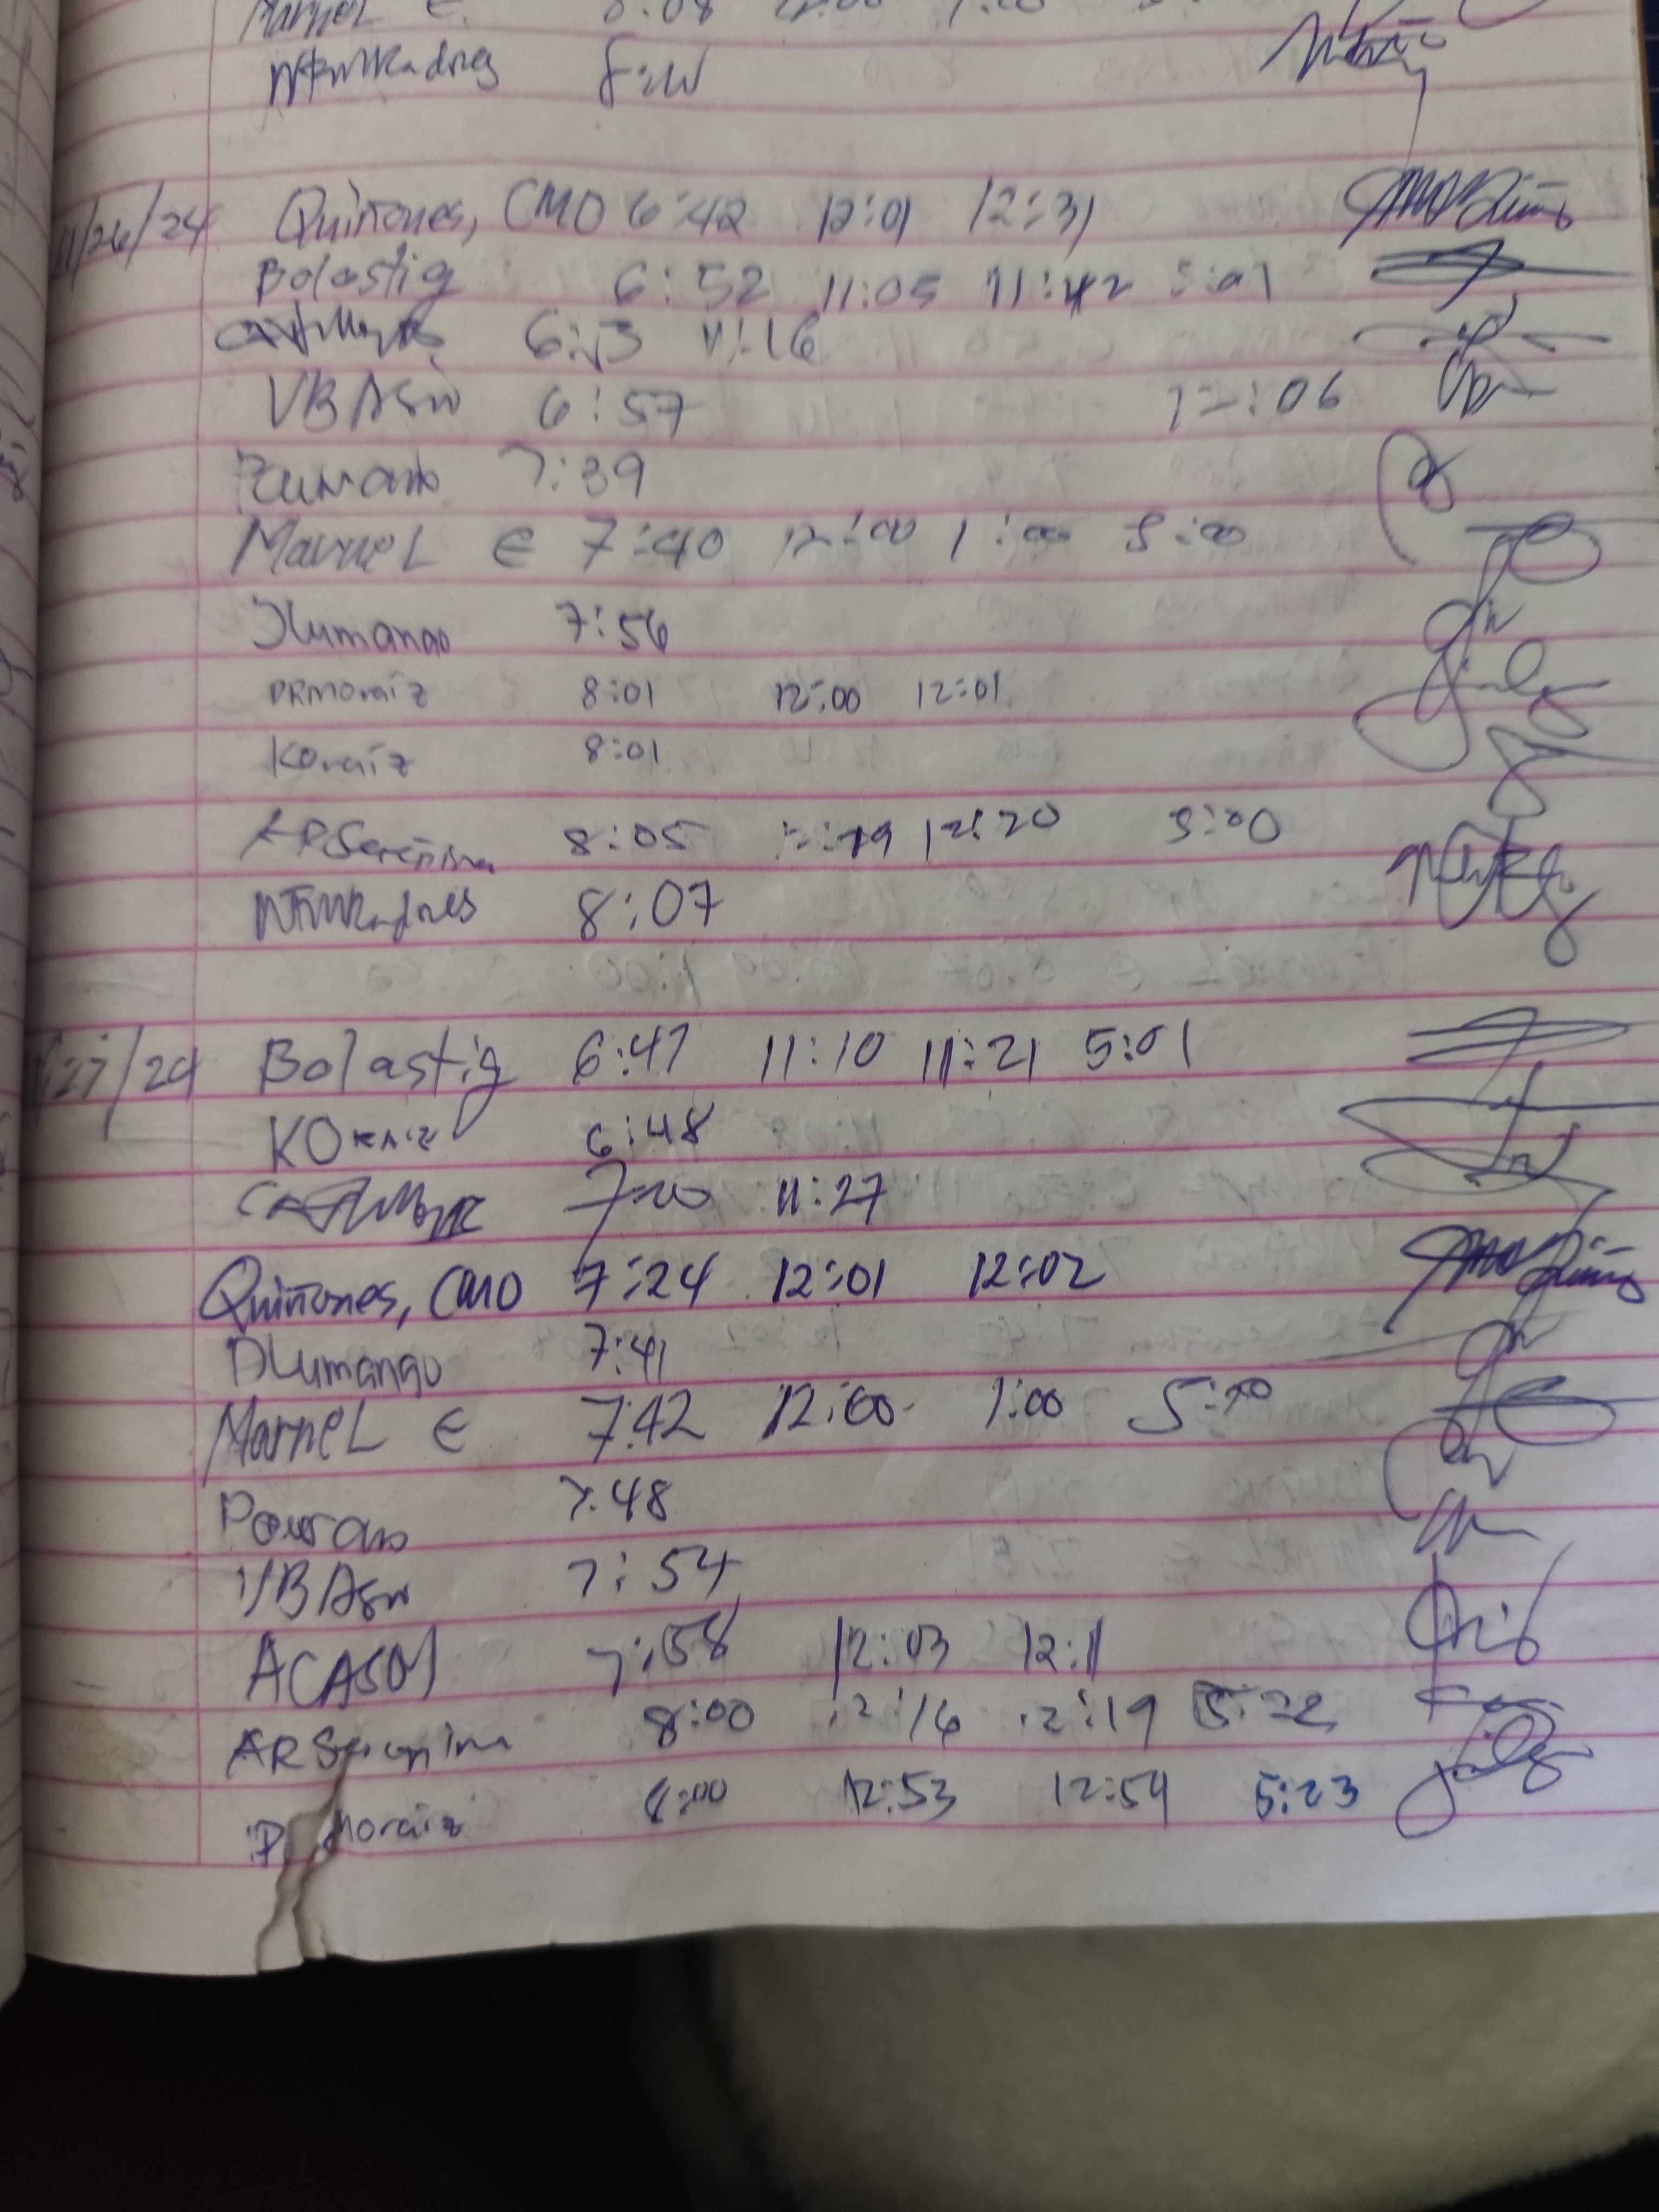 Marnel E. 8:08 12:00 1:00
8:10
11/26/24 Quiñones, CMO 6:42 12:01 12:31
Bolastig 6:52 11:05 11:42 5:01
6:53 11:16
VBAsin 6:57 12:06
7:39
Marnel E 7:40 12:00 1:00 5:00
JLumangao 7:56
DRMoraiz 8:01 12:00 12:01
KOraiz 8:01
ARSereñina 8:05 12:19 12:20 5:00
NFMRadores 8:07
11/27/24 Bolastig 6:47 11:10 11:21 5:01
KOraiz 6:48
7:20 11:27
Quiñones, CMO 7:24 12:01 12:02
DLumangao 7:41
Marnel E 7:42 12:00 1:00 5:00
7:48
VBAsin 7:54
ACASOY 7:58 12:03 12:11
ARSereñina 8:00 12:16 12:19 5:22
Moraiz 8:00 12:53 12:54 5:23